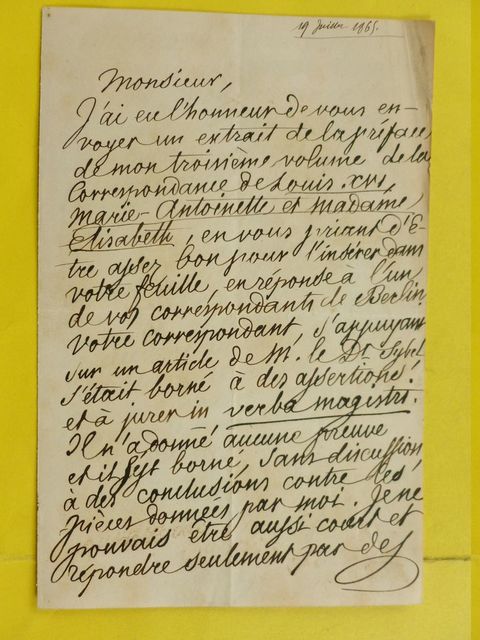 19 Juillet 1865.
Monsieur,
J'ai eu l'honneur de vous en-
voyer un extrait de la préface
de mon troisième volume de la
Correspondance de Louis XVI,
Marie-Antoinette et Madame
Elisabeth, en vous priant d'E-
tre assez bon pour l'insérer dans
votre feuille, en réponse à l'un
de vos correspondants de Berlin.
votre correspondant, s'appuyant
sur un article de M. le Dr Sybel
s'était borné à des assertions
et à jurer in verba magistri.
Il n'a donné aucune preuve
et il s'est borné, sans discussion
à des conclusions contre les
pièces données par moi. Je ne
pouvais être aussi court et
répondre seulement par des